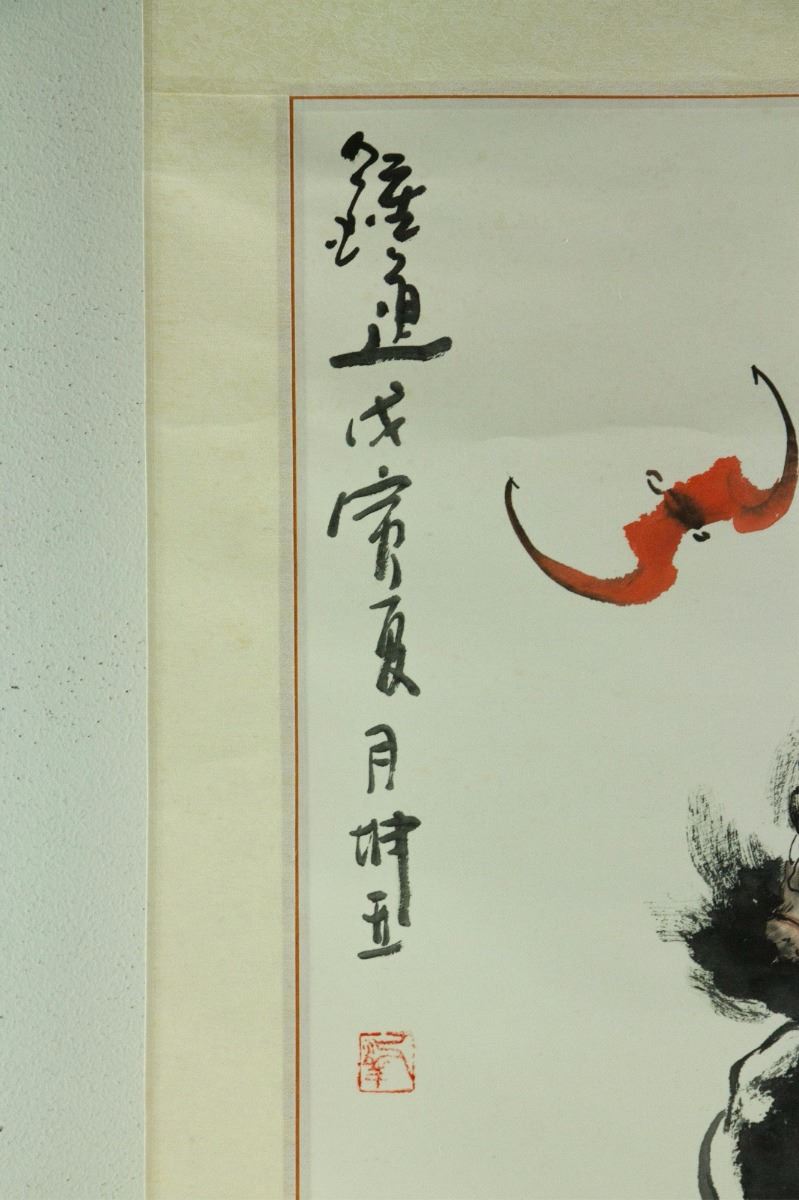 鍾馗戊寅夏月坤五